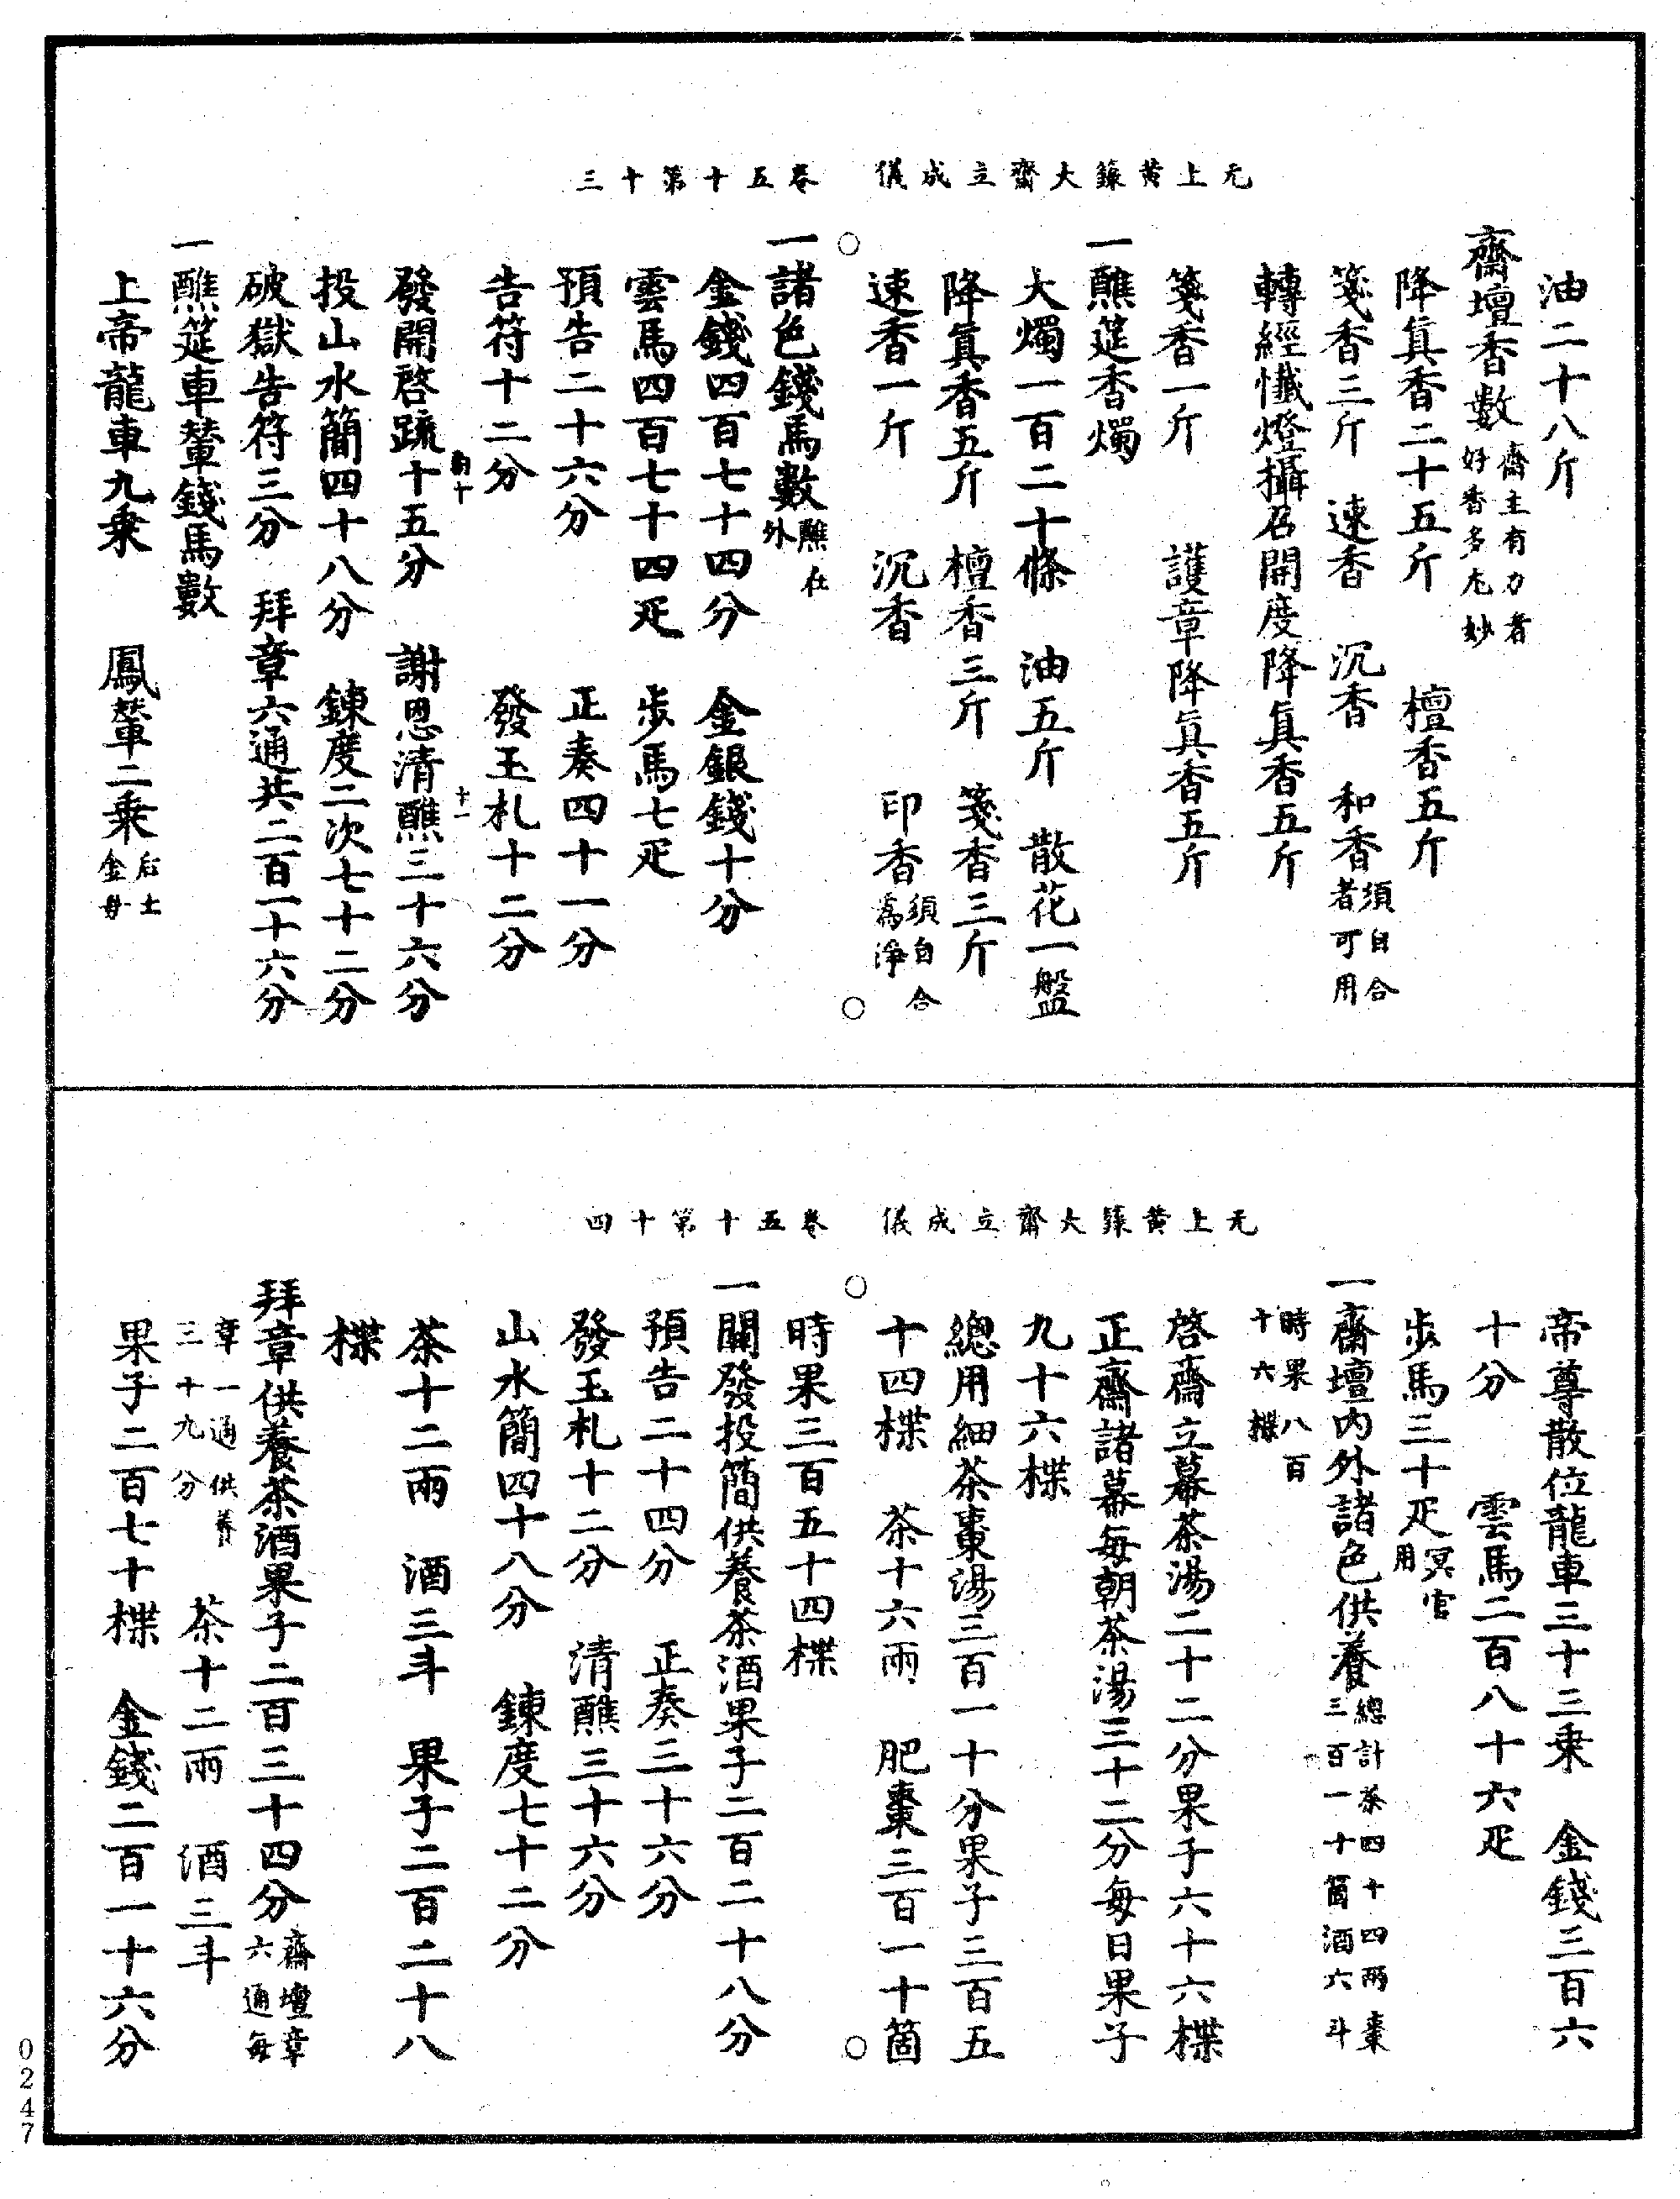 无上黃籙大齋立成儀　卷五十第十三
油二十八斤
齋壇香數齋主有力者好香多尤妙
降眞香二十五斤　檀香五斤
箋香三斤　速香　沉香　和香須自合者可用
轉經懺燈攝召開度降眞香五斤
箋香一斤　護章降眞香五斤
一醮筵香燭
大燭一百二十條　油五斤　散花一盤
降眞香五斤　檀香三斤　箋香三斤
速香一斤　沉香　印香須自合爲淨
一諸色錢馬數醮在外
金錢四百七十四分　金銀錢十分
雲馬四百七十四疋　步馬七疋
預告二十六分　正奏四十一分
告符十二分　發玉札十二分
發開啓䟽十五分　謝恩清醮三十六分
投山水簡四十八分　鍊度二次七十二分
破獄告符三分　拜章六通共二百一十六分
一醮筵車輦錢馬數
上帝龍車九乘　鳳輦二乘后土金母
无上黃籙大齋立成儀　卷五十第十四
帝尊散位龍車三十三乘　金錢三百六
十分　雲馬二百八十六疋
步馬三十疋冥官用
一齋壇內外諸色供養總計茶四十四兩棗三百一十箇酒六斗
時果八百十六楪
啓齋立幕茶湯二十二分果子六十六楪
正齋諸幕每朝茶湯三十二分每日果子
九十六楪
總用細茶棗湯三百一十分果子三百五
十四楪　茶十六兩　肥棗三百一十箇
時果三百五十四楪
一關發投簡供養茶酒果子二百二十八分
預告二十四分　正奏三十六分
發玉札十二分　清醮三十六分
山水簡四十八分　鍊度七十二分
茶十二兩　酒三斗　果子二百二十八
楪
拜章供養茶酒果子二百三十四分齋壇章六通每
章一通供養三十九分　茶十二兩　酒三斗
果子二百七十楪　金錢二百一十六分
0247